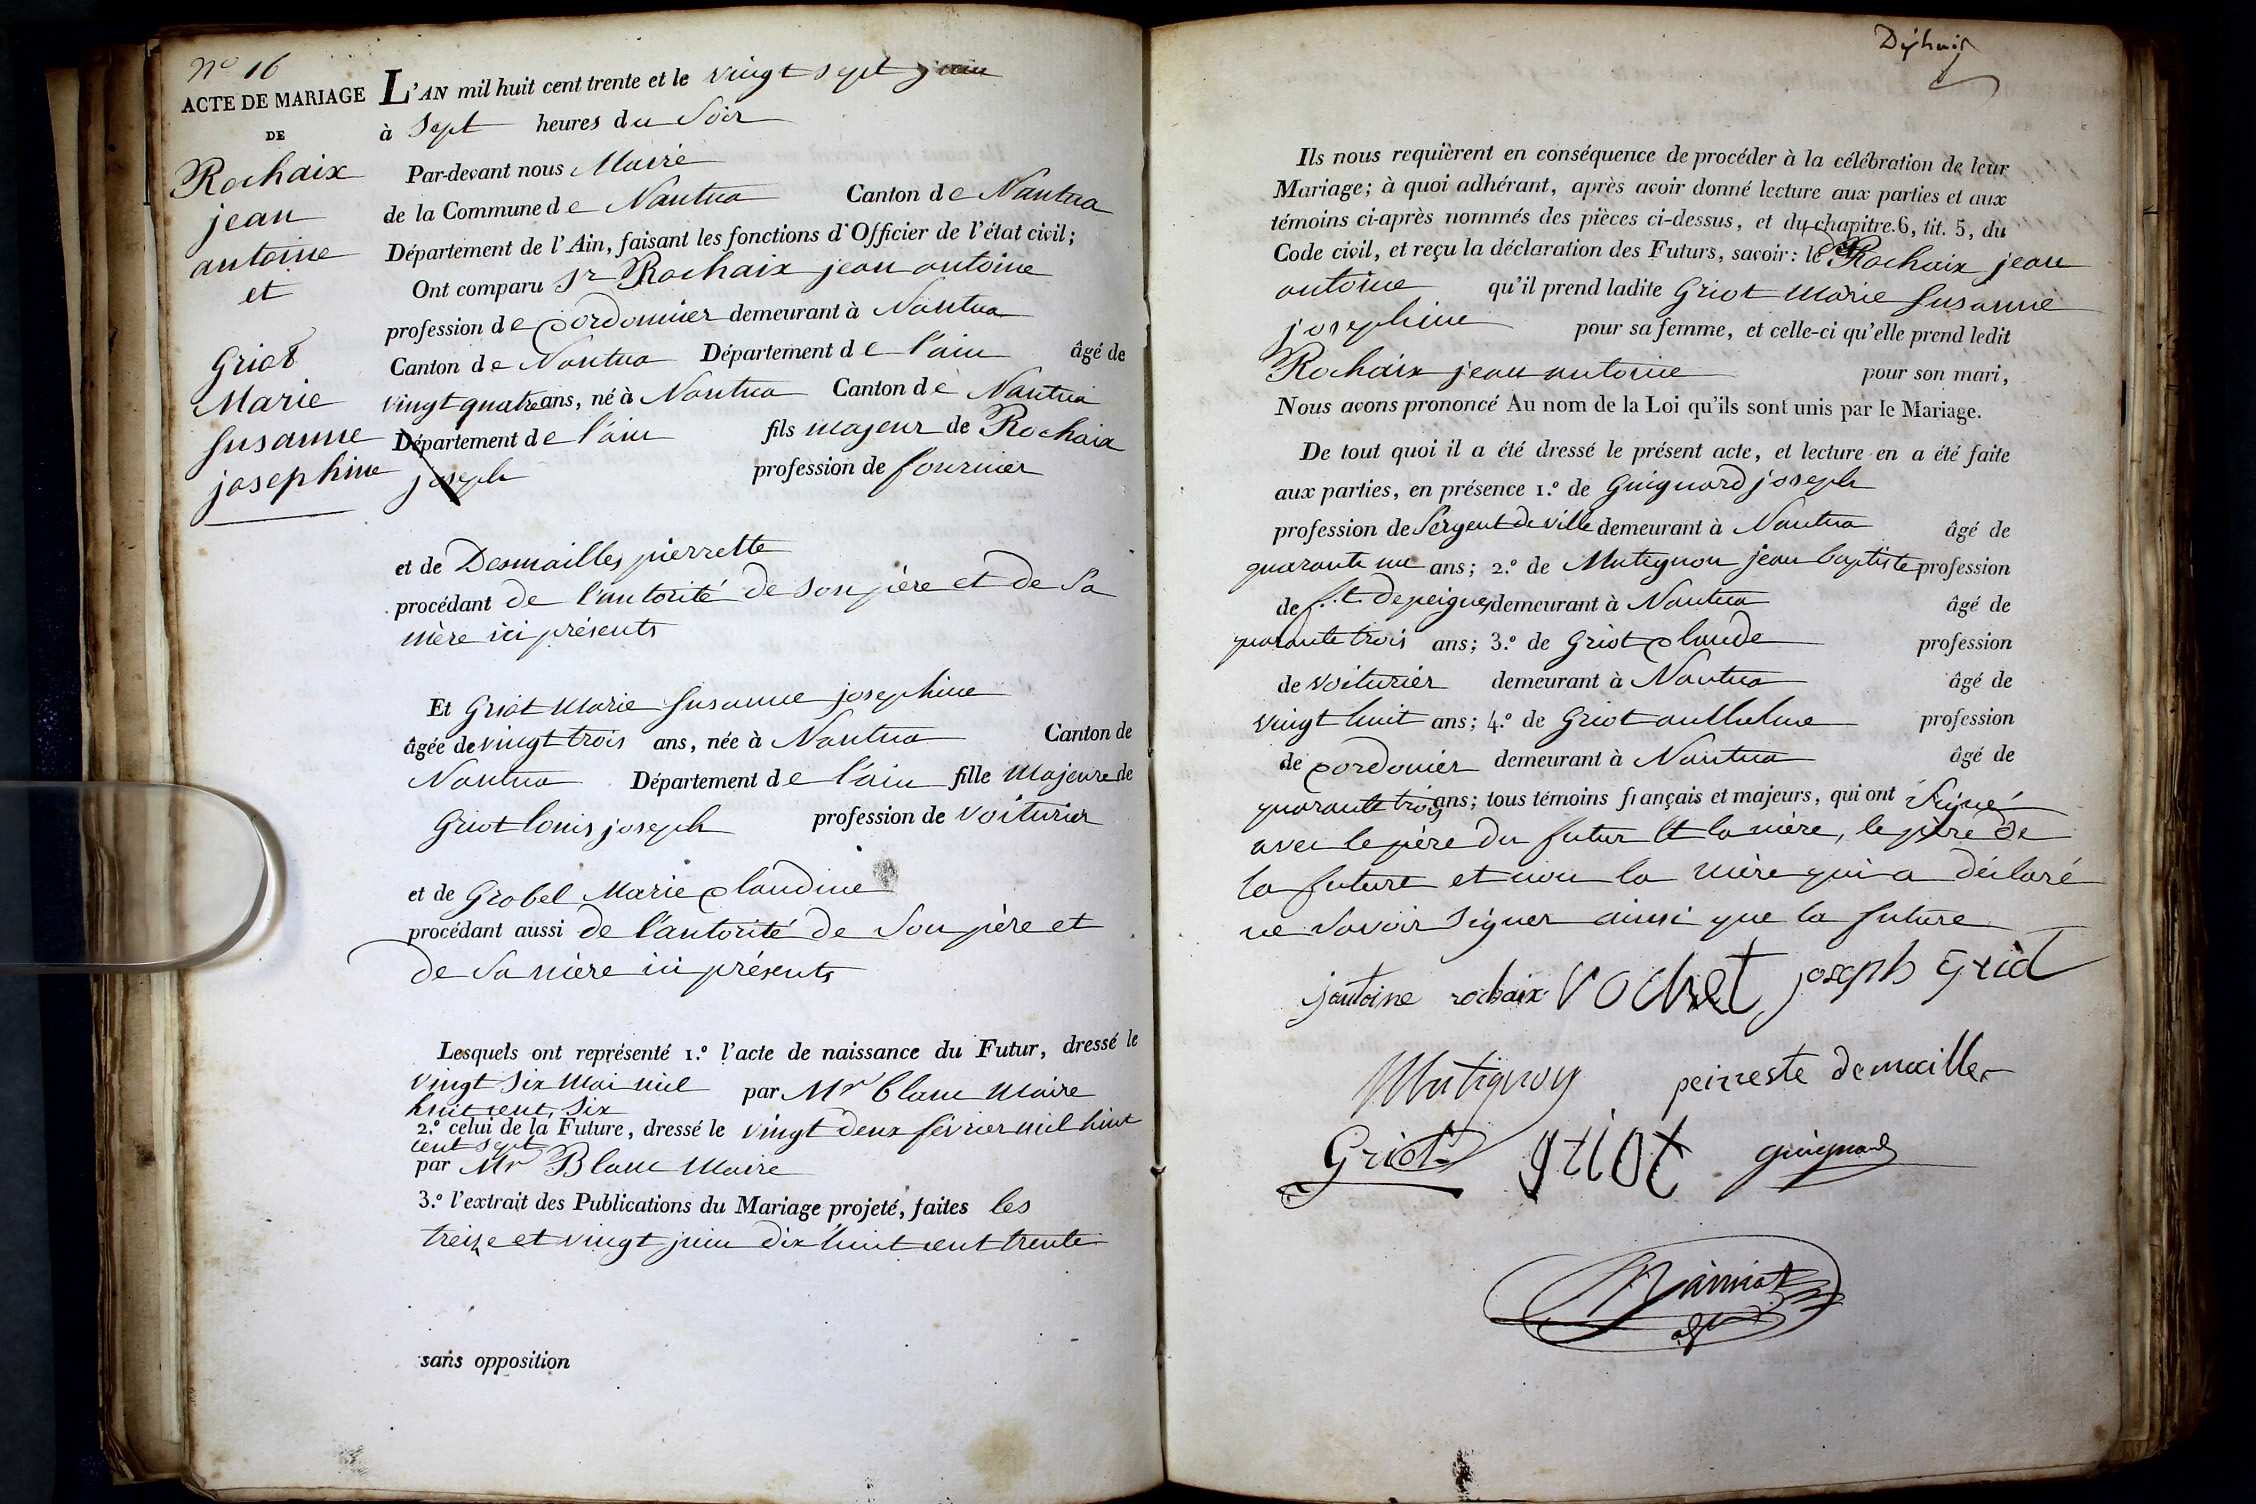 N° 16
ACTE DE MARIAGE
DE
Rochaix
jean
antoine
et
Griot
Marie
Susanne
josephine
L'AN mil huit cent trente et le vingt sept juin
à Sept heures du Soir
Par-devant nous Maire
de la Commune de Nantua Canton de Nantua
Département de l'Ain, faisant les fonctions d'Officier de l'état civil;
Ont comparu Sr Rochaix jean antoine
profession de Cordonnier demeurant à Nantua
Canton de Nantua Département de l'ain âgé de
vingt quatre ans, né à Nantua Canton de Nantua
Département de l'ain fils majeur de Rochaix
joseph profession de fournier
et de Desmailles pierrette
procédant de l'autorité de son père et de Sa
mère ici présents
Et Griot Marie Susanne josephine
âgée de vingt trois ans, née à Nantua Canton de
Nantua Département de l'ain fille Majeure de
Griot louis joseph profession de voiturier
et de Grobel Marie Claudine
procédant aussi de l'autorité de Son père et
de Sa mère ici présents
Lesquels ont représenté 1.° l'acte de naissance du Futur, dressé le
vingt Six Mai mil par Mr Blanc Maire
huit cent Six
2.° celui de la Future, dressé le vingt deux février mil huit
cent sept
par Mr Blanc Maire
3.° l'extrait des Publications du Mariage projeté, faites les
treize et vingt juin dix huit cent trente
sans opposition
Ils nous requièrent en conséquence de procéder à la célébration de leur
Mariage; à quoi adhérant, après avoir donné lecture aux parties et aux
témoins ci-après nommés des pièces ci-dessus, et du chapitre 6, tit. 5, du
Code civil, et reçu la déclaration des Futurs, savoir: le Rochaix jean
antoine qu'il prend ladite Griot Marie Susanne
josephine pour sa femme, et celle-ci qu'elle prend ledit
Rochaix jean antoine pour son mari,
Nous avons prononcé Au nom de la Loi qu'ils sont unis par le Mariage.
De tout quoi il a été dressé le présent acte, et lecture en a été faite
aux parties, en présence 1.° de Guignard joseph
profession de Sergent de ville demeurant à Nantua âgé de
quarante un ans; 2.° de Mutignon jean baptiste profession
de f.t. de peignes demeurant à Nantua âgé de
quarante trois ans; 3.° de Griot Claude profession
de voiturier demeurant à Nantua âgé de
vingt huit ans; 4.° de Griot anthelme profession
de Cordonier demeurant à Nantua âgé de
quarante trois ans; tous témoins français et majeurs, qui ont Signé
avec le père du futur et la mère, le père de
la future et non la mère qui a déclaré
ne Savoir Signer ainsi que la future
jantoine rochaix rochet joseph Griot
Mutignon peirreste demailler
Griot griot guignard